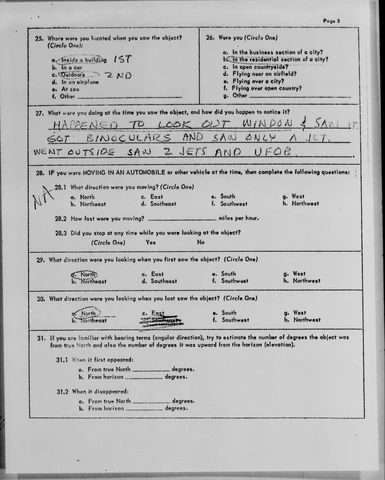 Page 5
25. Where were you located when you saw the object?
(Circle One):
a. Inside a building 1ST
b. In a car
c. Outdoors 2ND
d. In an airplane
e. At sea
f. Other
26. Were you (Circle One)
a. In the business section of a city?
b. In the residential section of a city?
c. In open countryside?
d. Flying near an airfield?
e. Flying over a city?
f. Flying over open country?
g. Other
27. What were you doing at the time you saw the object, and how did you happen to notice it?
HAPPENED TO LOOK OUT WINDOW & SAW IT
GOT BINOCULARS AND SAW ONLY A JET.
WENT OUTSIDE SAW 2 JETS AND UFOB.
28. IF you were MOVING IN AN AUTOMOBILE or other vehicle at the time, then complete the following questions:
NA
28.1 What direction were you moving? (Circle One)
a. North c. East e. South g. West
b. Northeast d. Southeast f. Southwest h. Northwest
28.2 How fast were you moving? miles per hour.
28.3 Did you stop at any time while you were looking at the object?
(Circle One) Yes No
29. What direction were you looking when you first saw the object? (Circle One)
a. North c. East e. South g. West
b. Northeast d. Southeast f. Southwest h. Northwest
30. What direction were you looking when you last saw the object? (Circle One)
a. North c. East e. South g. West
b. Northeast f. Southwest h. Northwest
31. If you are familiar with bearing terms (angular direction), try to estimate the number of degrees the object was
from true North and also the number of degrees it was upward from the horizon (elevation).
31.1 When it first appeared:
a. From true North degrees.
b. From horizon degrees.
31.2 When it disappeared:
a. From true North degrees.
b. From horizon degrees.